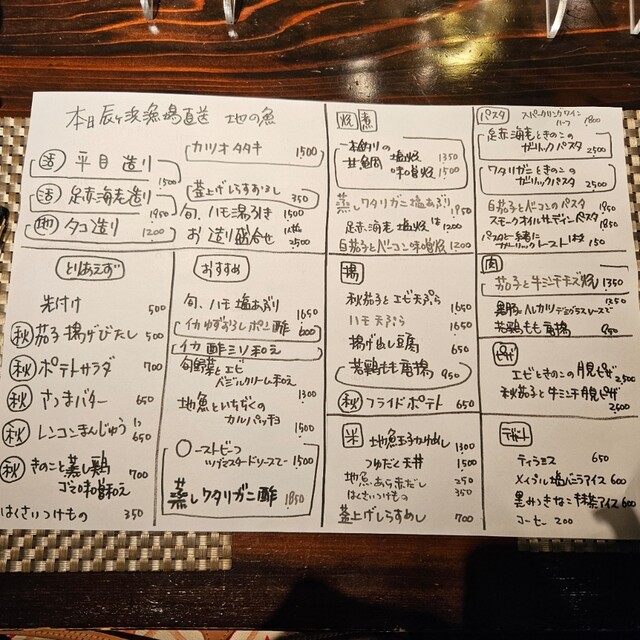 本日辰ヶ浜漁場直送 地の魚
活 平目造り 1500
活 足赤海老造り 1850
地 タコ造り 1200
カツオタタキ 1500
釜上げしらすおろし 350
旬、ハモ湯引き 1500
お造り盛合せ 1人前 2500
とりあえず
先付け 500
秋 茄子揚げびたし 500
秋 ポテトサラダ 700
秋 さつまバター 650
秋 レンコンまんじゅう 650
秋 きのこと蒸し鶏
ゴマ味噌和え 700
はくさいつけもの 350
おすすめ
旬、ハモ塩あぶり 1650
イカゆずおろしポン酢 600
イカ酢ミソ和え
旬野菜とエビ
バジルクリーム和え 1300
地魚といちぢくの
カルパッチョ 1500
ローストビーフ
ツブマスタードソースで 1500
蒸しワタリガニ酢 1850
焼 煮
一本釣りの
甘鯛 塩焼 1350
味噌焼 1500
蒸しワタリガニ塩あぶり 1850
足赤海老 塩焼 1200
白茄子とベーコン味噌焼 1200
揚
秋茄子とエビ天ぷら 1650
ハモ天ぷら 1650
揚げ出し豆腐 650
若鶏もも唐揚 950
秋 フライドポテト 650
米
地魚玉子かけめし 1300
つゆだく天丼 1500
地魚、あら赤だし 250
はくさいつけもの 350
釜上げしらすめし 700
パスタ
スパークリングワイン
ハーフ 1800
足赤海老ときのこの
ガーリックパスタ 2500
ワタリガニときのこの
ガーリックパスタ 2500
白茄子とベーコンのパスタ 1850
スモークオイルサーディンパスタ 1850
パスタと一緒に
ガーリックトースト 150
肉
茄子と牛ミンチチーズ焼 1350
若鶏もも唐揚 950
ピザ
エビときのこの月見ピザ 2500
秋茄子と牛ミンチ月見ピザ 2500
デザート
ティラミス 650
メイプル塩バニラアイス 600
黒みつきなこ抹茶アイス 600
コーヒー 200